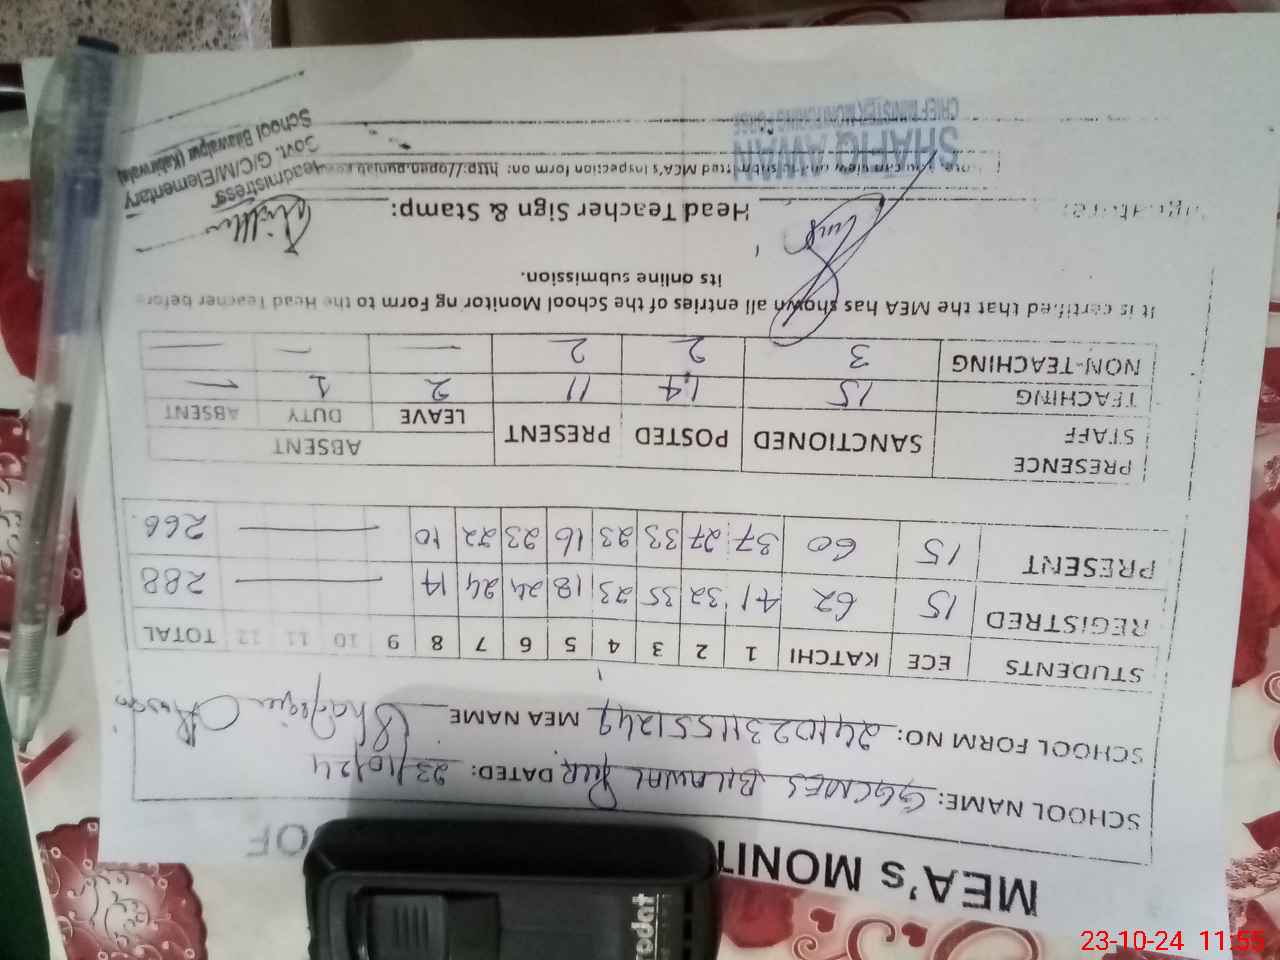 MEA's MONIT OF
SCHOOL NAME: GGCMES BILAWAL PUR DATED: 23/10/24
SCHOOL FORM NO: 24102311551249 MEA NAME Shafique Awan
STUDENTS ECE KATCHI 1 2 3 4 5 6 7 8 9 10 11 12 TOTAL
REGISTRED 15 62 41 32 35 23 18 24 24 14 288
PRESENT 15 60 37 27 33 23 16 23 22 10 266
PRESENCE STAFF SANCTIONED POSTED PRESENT ABSENT
LEAVE DUTY ABSENT
TEACHING 15 14 11 2 1 —
NON-TEACHING 3 2 2 — — —
It is certified that the MEA has shown all entries of the School Monitoring Form to the Head Teacher before
its online submission.
Head Teacher Sign & Stamp:
MEA's inspection form on: http://open.punjab
SHAFIQ AWAN
CHIEF MINISTER MONITORING FORCE
Headmistress
Govt. G/C/M/Elementary
School Bilawalpur (Kabirwala)
redat
23-10-24 11:55